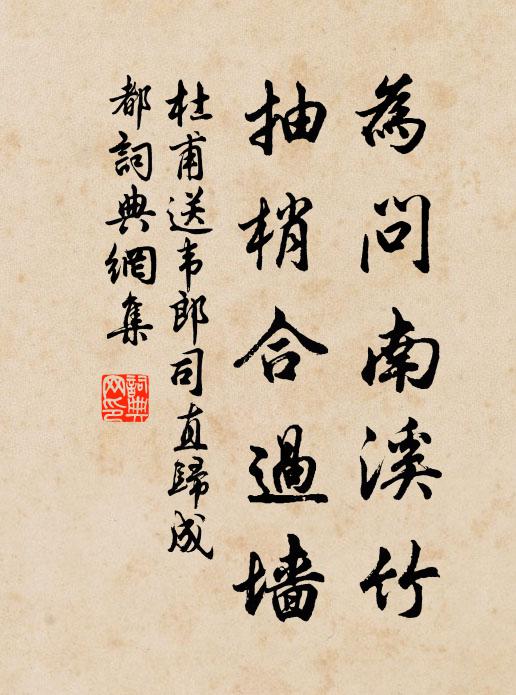 為問南溪竹
抽梢合過墙
杜甫送韦郎司直歸成
都詞典網集
詞典
网印